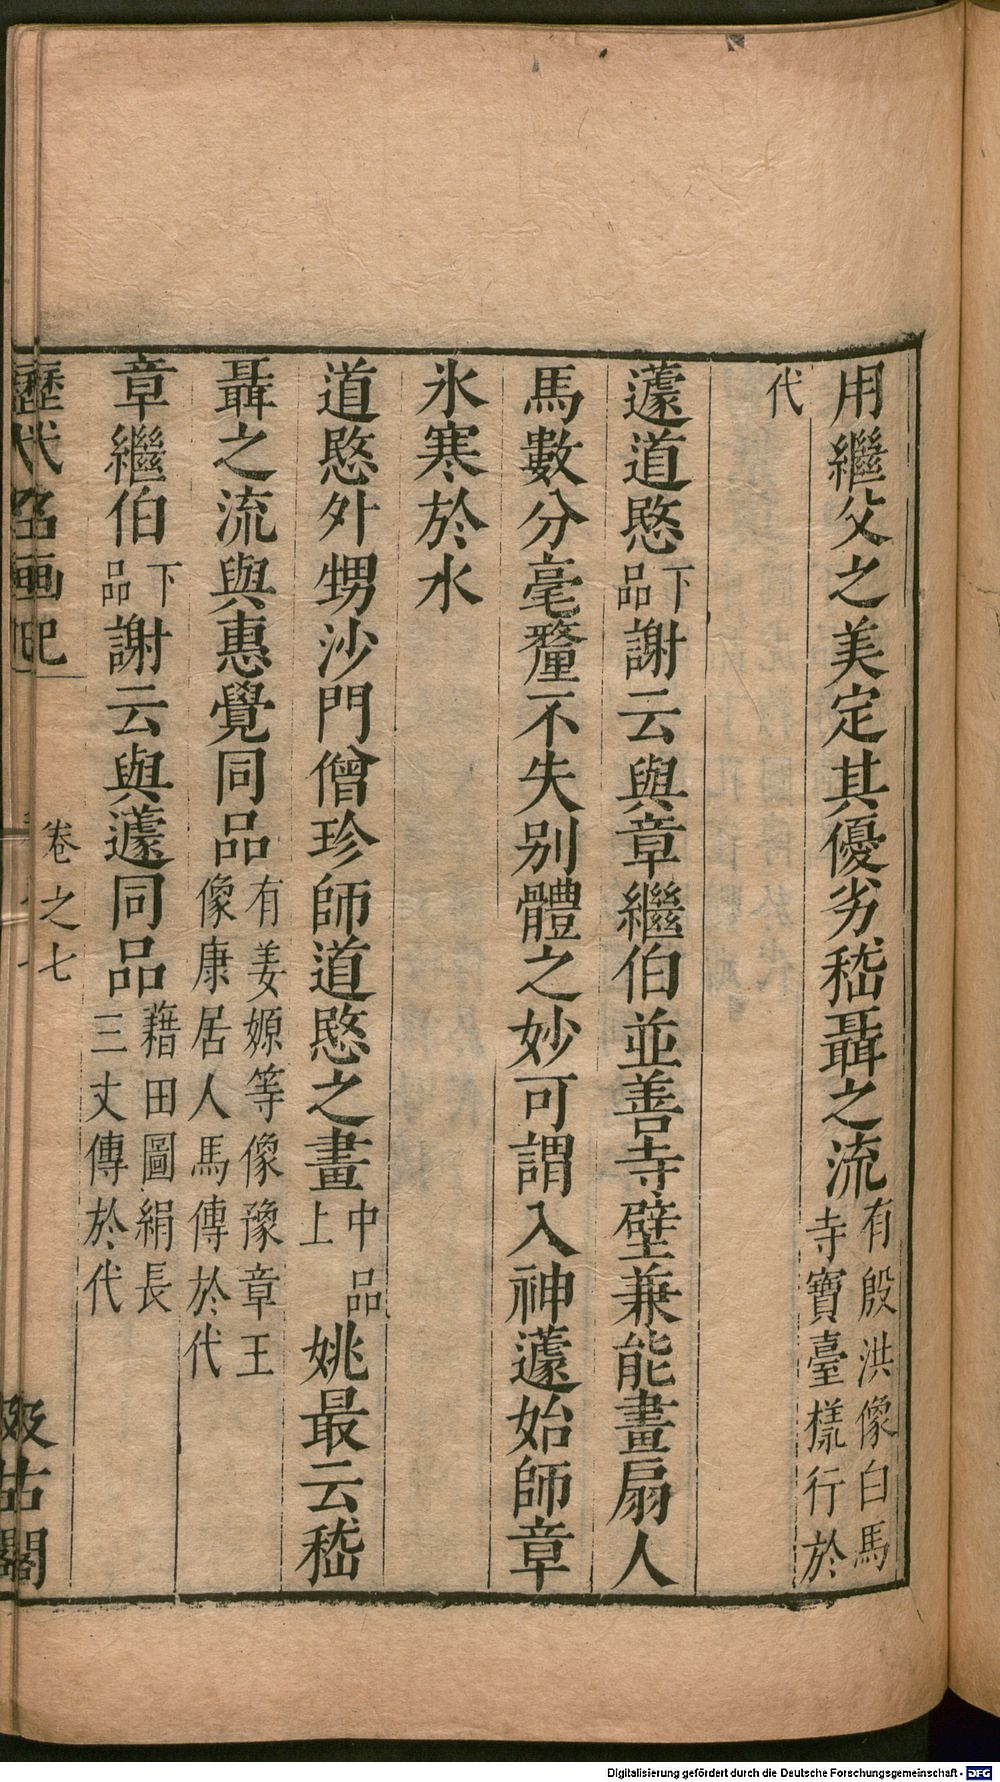 用繼父之美定其優劣嵇聶之流有殷洪像白馬寺寶臺樣行於
代
蘧道愍下品謝云與章繼伯並善寺壁兼能畫扇人
馬數分毫釐不失别體之妙可謂入神蘧始師章
氷寒於水
道愍外甥沙門僧珍師道愍之畫中品上姚最云嵇
聶之流與惠覺同品有姜嫄等像豫章王像康居人馬傳於代
章繼伯下品謝云與蘧同品藉田圖絹長三丈傳於代
歷代名画記 卷之七 汲古閣
Digitalisierung gefördert durch die Deutsche Forschungsgemeinschaft - DFG